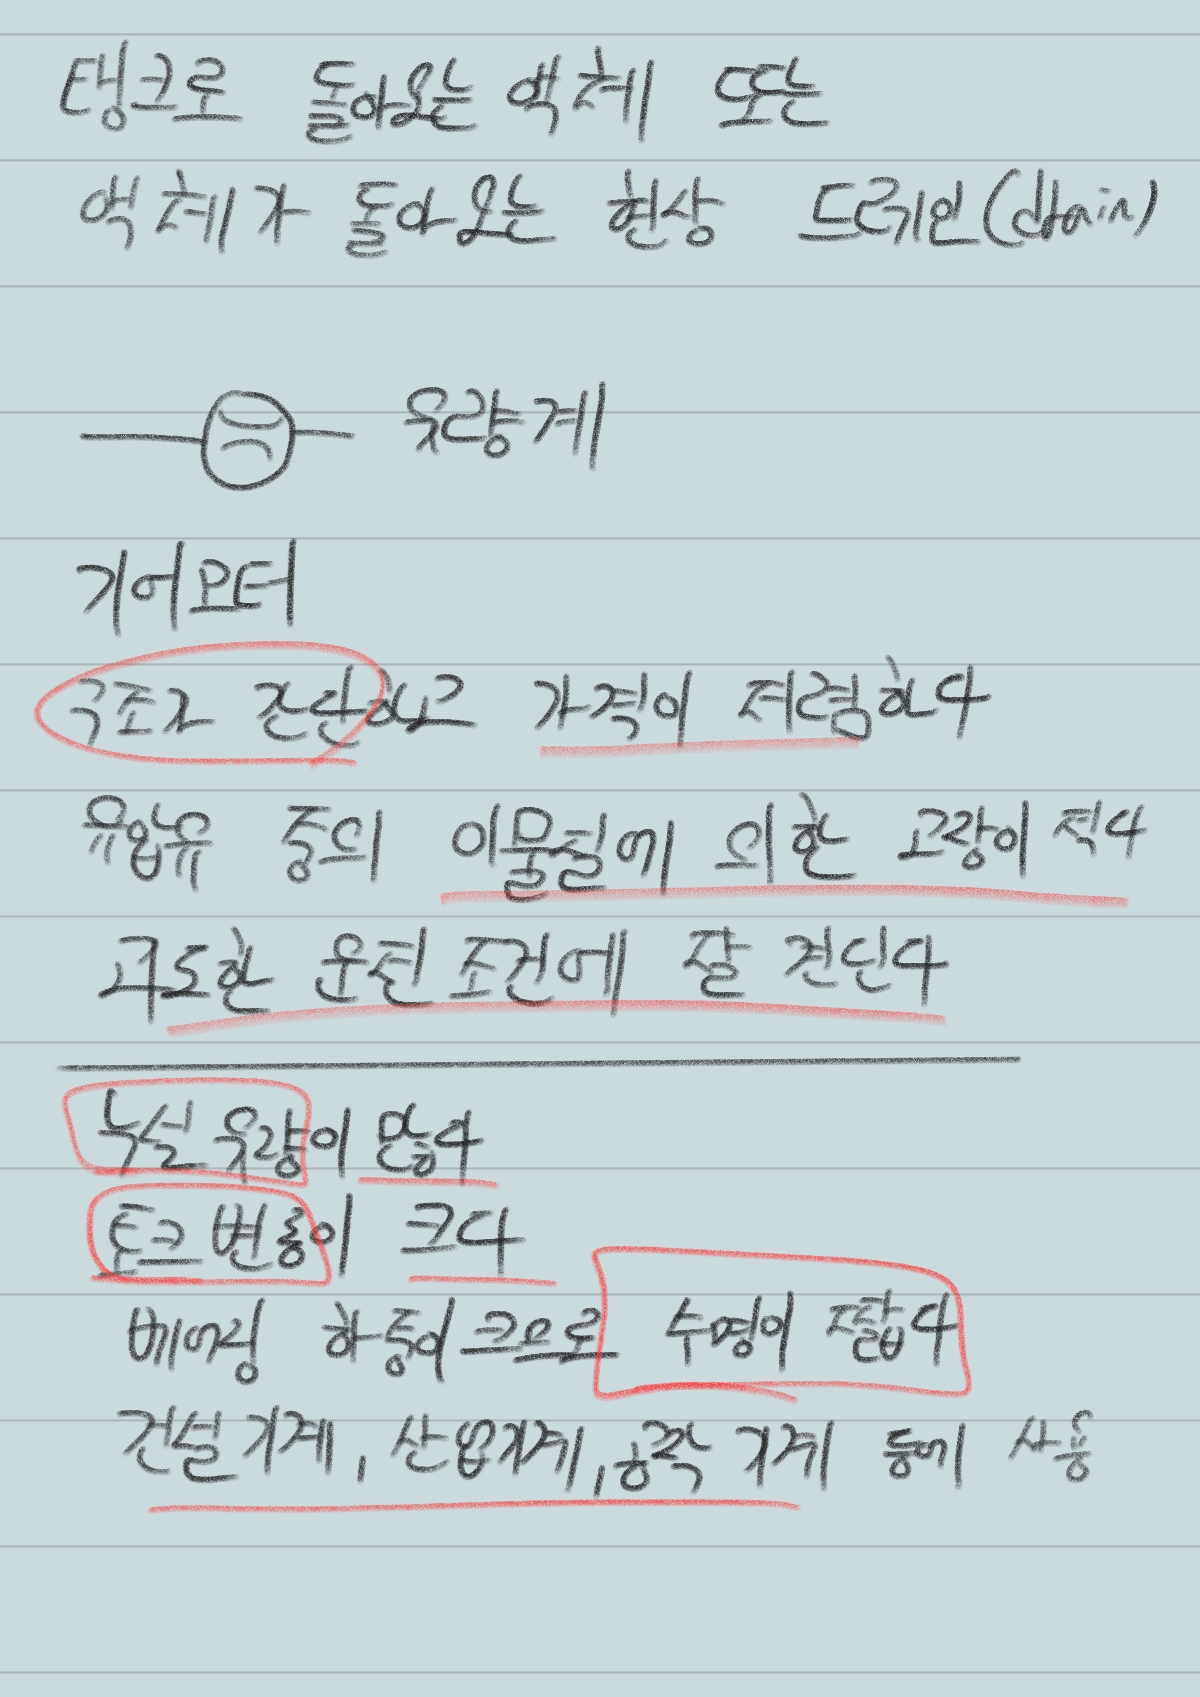 탱크로 돌아오는 액체 또는
액체가 돌아오는 현상 드레인(drain)
유량계
기어모터
구조가 간단하고 가격이 저렴하다
유압유 중의 이물질에 의한 고장이 적다
과도한 운전 조건에 잘 견딘다
누설 유량이 많다
토크 변동이 크다
베어링 하중이 크므로 수명이 짧다
건설기계, 산업기계, 공작 기계 등에 사용